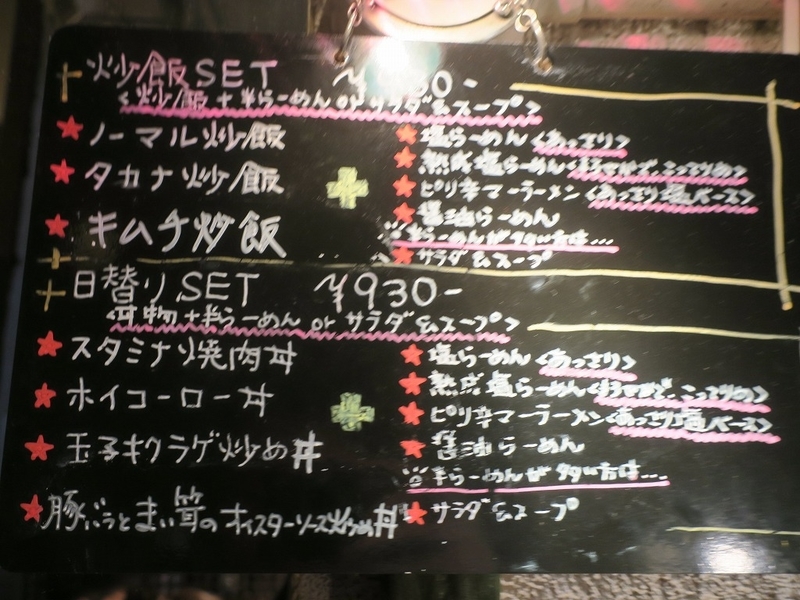 炒飯SET
<炒飯+半らーめん or サラダ&スープ>
★ノーマル炒飯
★タカナ炒飯
★キムチ炒飯
+
★塩らーめん<あっさり>
★熟成塩らーめん
★ピリ辛マーラーメン<あっさり塩ベース>
★醤油らーめん
半らーめんが多い方は…
★サラダ&スープ
日替りSET ¥930-
<丼物+半らーめん or サラダ&スープ>
★スタミナ焼肉丼
★ホイコーロー丼
★玉子キクラゲ炒め丼
★豚バラとまい茸のオイスターソース炒め丼
+
★塩らーめん<あっさり>
★熟成塩らーめん
★ピリ辛マーラーメン<あっさり塩ベース>
★醤油らーめん
半らーめんが多い方は…
★サラダ&スープ